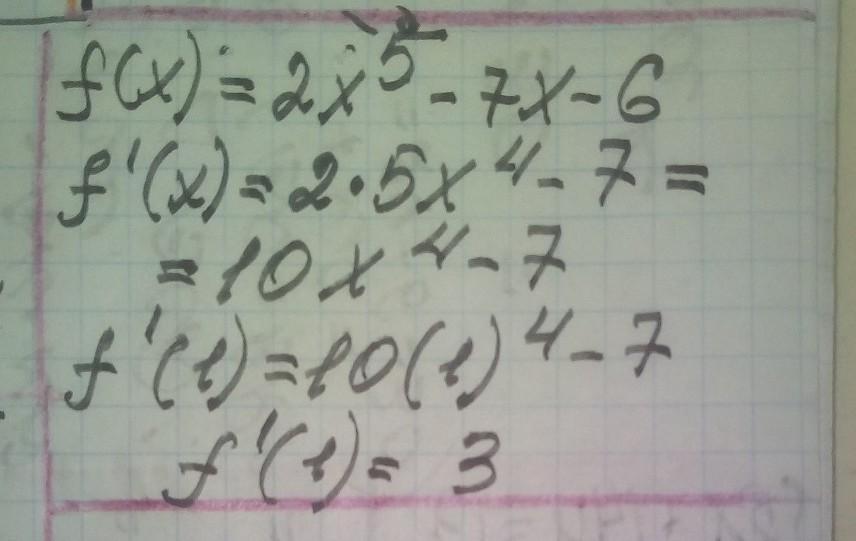 f(x) = 2x⁵ - 7x - 6
f'(x) = 2·5x⁴ - 7 =
= 10x⁴ - 7
f'(1) = 10(1)⁴ - 7
f'(1) = 3